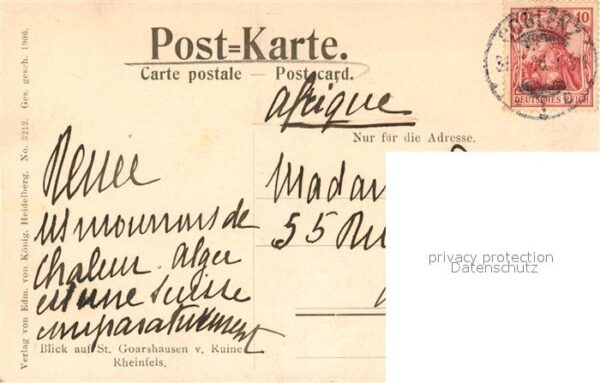 Post=Karte.
Carte postale — Postcard.
10
DEUTSCHES REICH
Afrique
Nur für die Adresse.
Madam
55 Ru
Renée
mourrons de
chaleur. Alger
est une Suisse
comparativement
Blick auf St. Goarshausen v. Ruine
Rheinfels.
Verlag von Edm. von König, Heidelberg. No. 3212. Ges. gesch. 1906.
privacy protection
Datenschutz